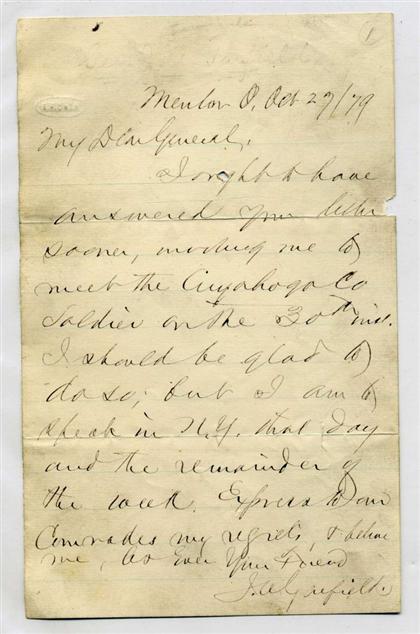 1
Mentor O, Oct 27/79
My Dear General,
I ought to have
answered your letter
sooner, inviting me to
meet the Cuyahoga Co
Soldier on the 30th inst.
I should be glad to
do so; but I am to
speak in N.Y. that day
and the remainder of
the week. Express to our
Comrades my regrets, & believe
me, as Ever Your Friend
J.A. Garfield.